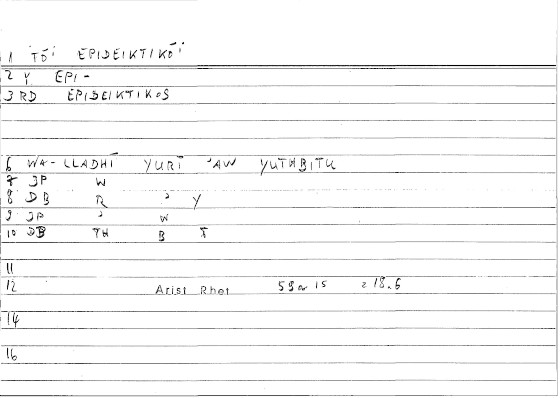 1 TŌI EPIDEIKTIKŌI
2 Y EPI-
3 RD EPIDEIKTIKOS
6 WA-LLADHĪ YURĪ 'AW YUTHBITU
7 JP W
8 DB R ' Y
9 JP ' W
10 DB TH B T
11
12 Arist Rhet 58a15 = 18.6
14
16